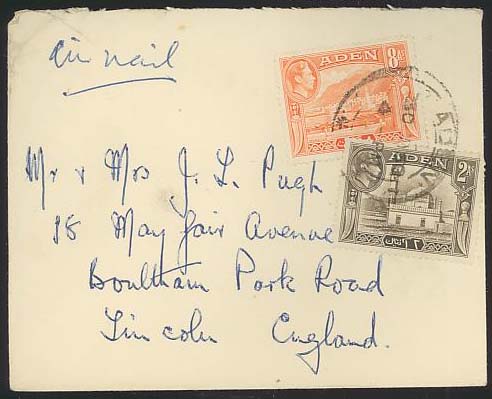 air mail
ADEN
8As
ADEN
2As
Mr & Mrs J. L. Pugh
18 May fair Avenue
Boultham Park Road
Lincoln England.